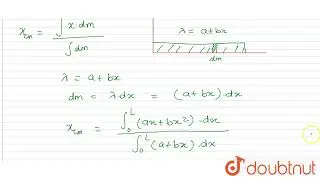 x_cm = ∫x·dm / ∫dm
λ = a+bx
dm
λ = a+bx
dm = λ·dx = (a+bx)·dx
x_cm = ∫₀ᴸ(ax+bx²)·dx / ∫₀ᴸ(a+bx)·dx
doubtnut